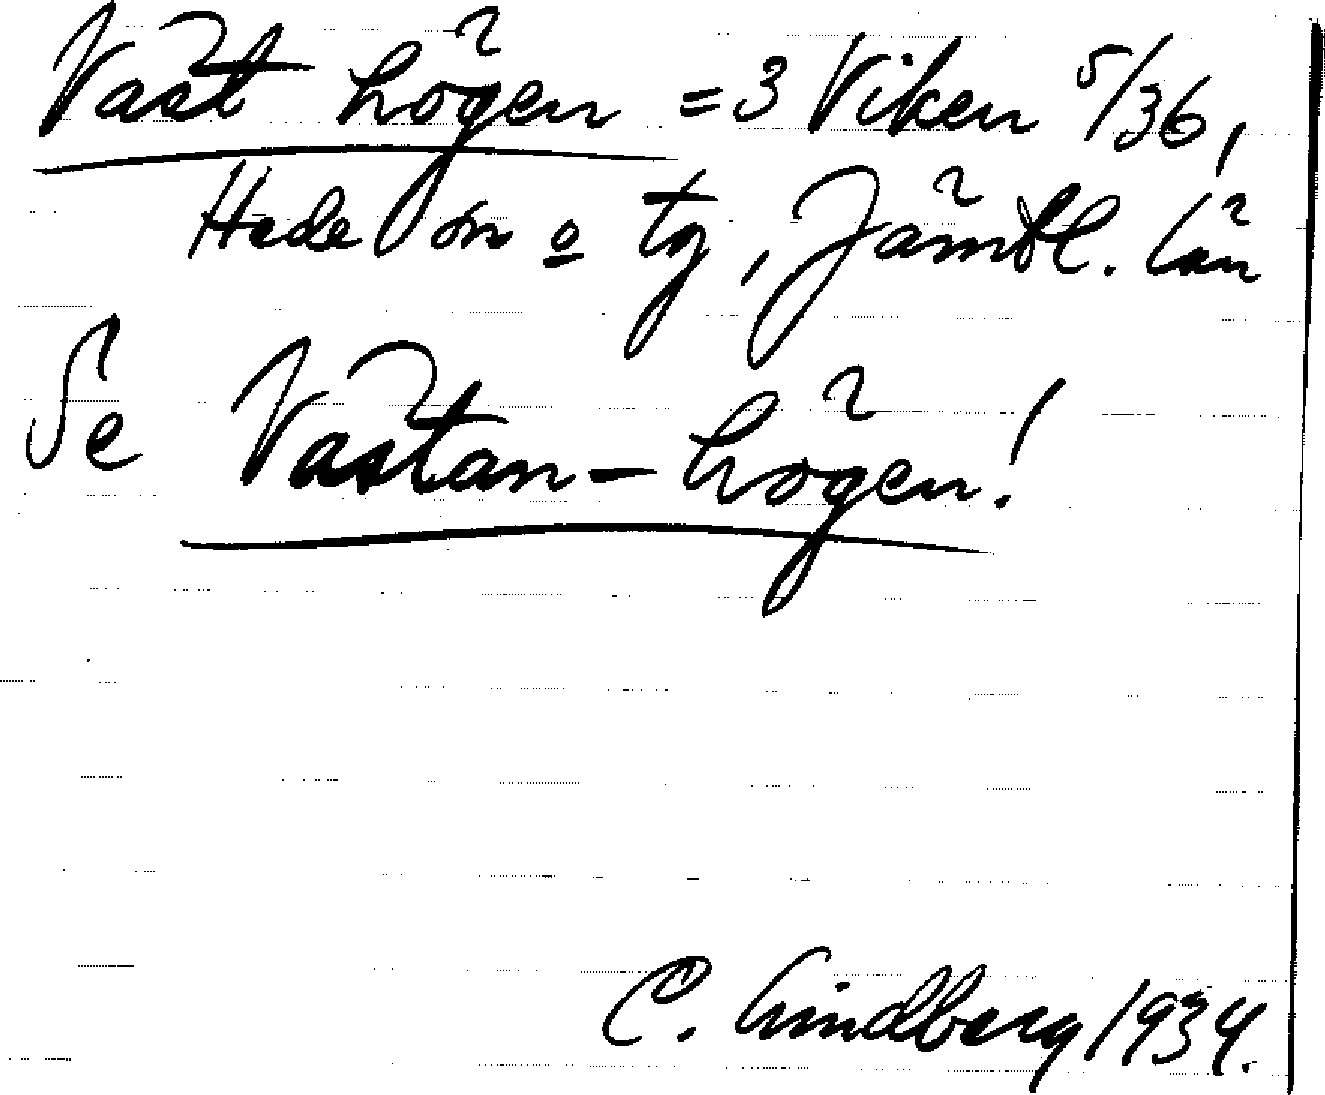 Väst högen = 3 Viken 5/36,
Hede sn o tg, Jämtl. län
Se Västan-högen!
C. Lindberg 1934.